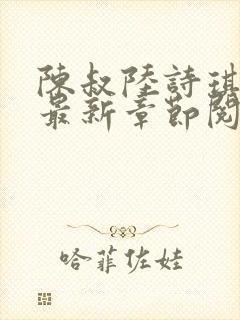 陳叔陸詩琪
最新章節閱
哈菲佐娃